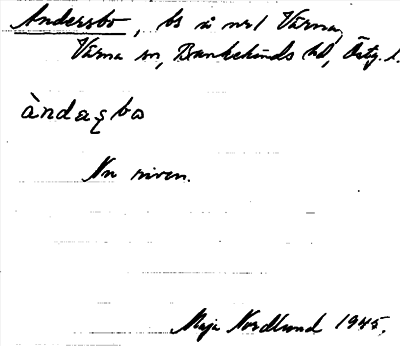 Andersbo, bs å nr 1 Värna,
Värna sn, Bankekinds hd, Östg. l.
àndaʂbo
Nu riven.
Maja Nordlund 1945.